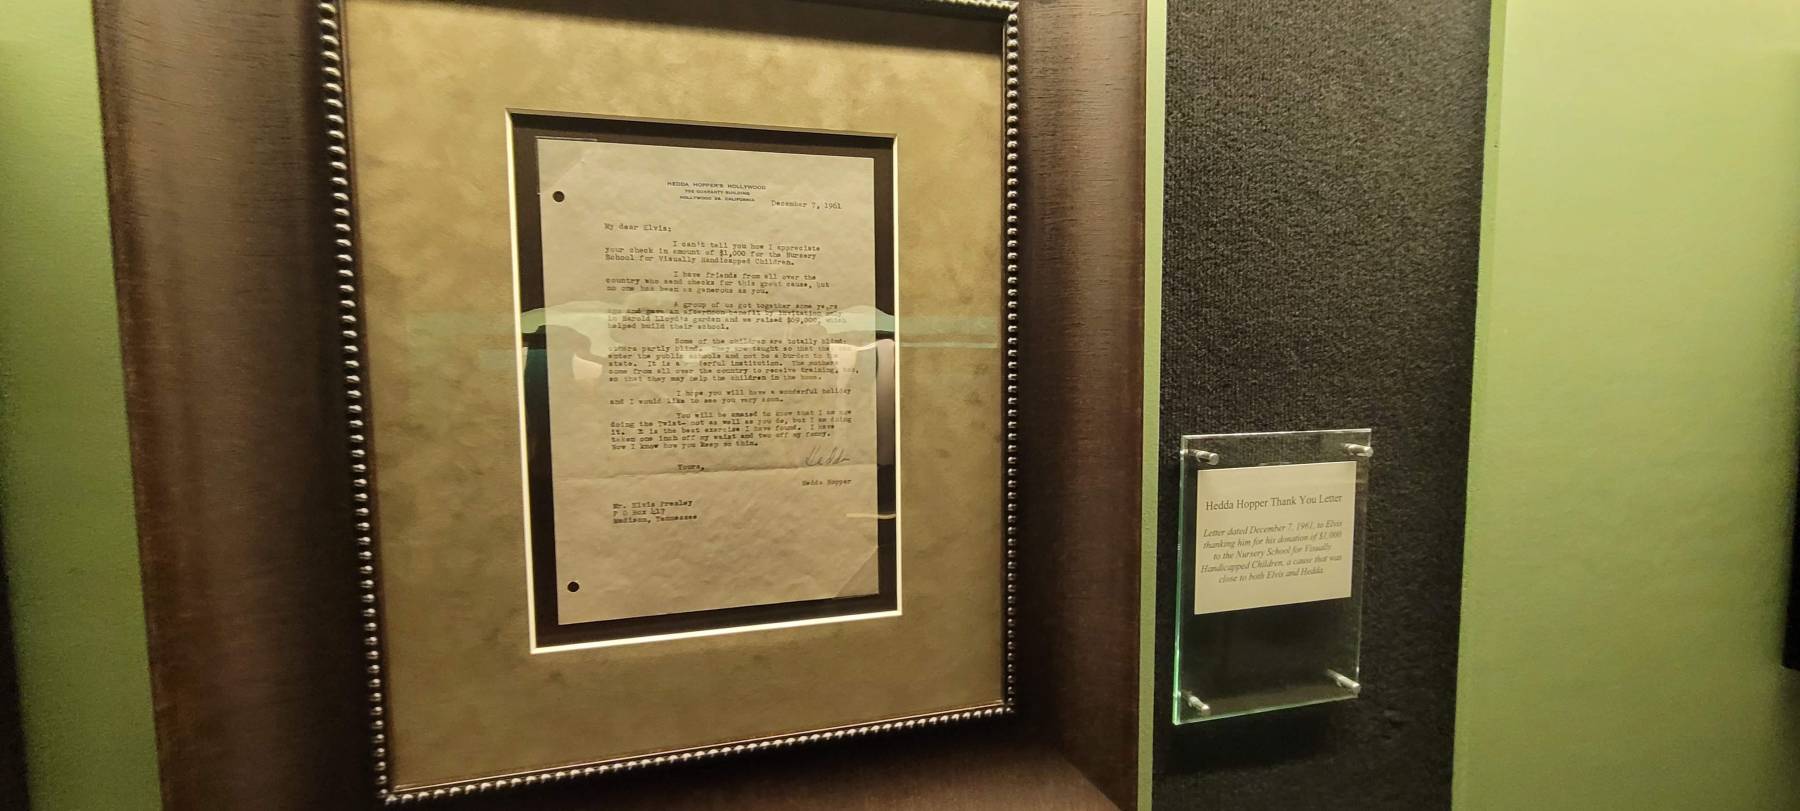 HEDDA HOPPER'S HOLLYWOOD
702 GUARANTY BUILDING
HOLLYWOOD 28, CALIFORNIA
December 7, 1961
My dear Elvis:
I can't tell you how I appreciate
your check in amount of $1,000 for the Nursery
School for Visually Handicapped Children.
I have friends from all over the
country who send checks for this great cause, but
no one has been as generous as you.
A group of us got together some years
ago and gave an afternoon benefit by invitation only
in Harold Lloyd's garden and we raised $69,000, which
helped build their school.
Some of the children are totally blind;
others partly blind. They are taught so that they can
enter the public schools and not be a burden to the
state. It is a wonderful institution. The mothers
come from all over the country to receive training, too,
so that they may help the children in the home.
I hope you will have a wonderful holiday
and I would like to see you very soon.
You will be amazed to know that I am now
doing the Twist- not as well as you do, but I am doing
it. It is the best exercise I have found. I have
taken one inch off my waist and two off my fanny.
Now I know how you keep so thin.
Yours,
Hedda
Hedda Hopper
Mr. Elvis Presley
P O Box 417
Madison, Tennessee
Hedda Hopper Thank You Letter
Letter dated December 7, 1961, to Elvis
thanking him for his donation of $1,000
to the Nursery School for Visually
Handicapped Children, a cause that was
close to both Elvis and Hedda.